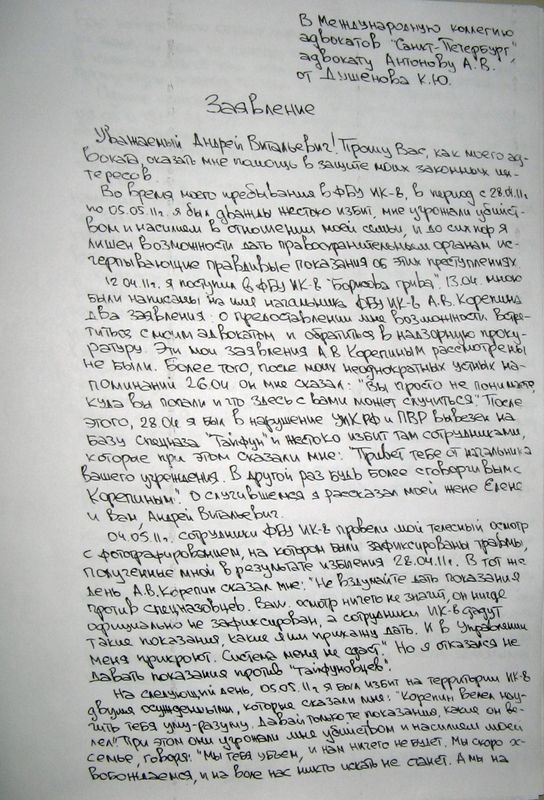 В Международную коллегию
адвокатов "Санкт-Петербург",
адвокату Антонову А.В.
от Душенова К.Ю.
Заявление
Уважаемый Андрей Витальевич! Прошу Вас, как моего ад-
воката, оказать мне помощь в защите моих законных ин-
тересов.
Во время моего пребывания в ФБУ ИК-8, в период с 28.04.11г
по 05.05.11г. я был дважды жестоко избит, мне угрожали убийст-
вом и насилием в отношении моей семьи, и до сих пор я
лишен возможности дать правоохранительным органам ис-
черпывающие правдивые показания об этих преступлениях.
12.04.11г. я поступил в ФБУ ИК-8 "Борисова грива". 13.04. мною
были написаны на имя начальника ФБУ ИК-8 А.В. Корепина
два заявления: о предоставлении мне возможности встре-
титься с моим адвокатом и обратиться в надзорную проку-
ратуру. Эти мои заявления А.В Корепиным рассмотрены
не были. Более того, после моих неоднократных устных на-
поминаний 26.04 он мне сказал: "Вы просто не понимаете,
куда вы попали и что здесь с вами может случиться". После
этого, 28.04 я был в нарушение УИК РФ и ПВР вывезен на
базу спецназа "Тайфун" и жестоко избит там сотрудниками,
которые при этом сказали мне: "Привет тебе от начальника
вашего учреждения. В другой раз будь более сговорчивым с
Корепиным". О случившемся я рассказал моей жене Елене
и Вам, Андрей Витальевич.
04.05.11г. сотрудники ФБУ ИК-8 провели мой телесный осмотр
с фотографированием, на котором были зафиксированы травмы,
полученные мной в результате избиения 28.04.11г. В тот же
день А.В. Корепин сказал мне: "Не вздумайте дать показания
против спецназовцев. Ваш осмотр ничего не значит, он нигде
официально не зафиксирован, а сотрудники ИК-8 дадут
такие показания, какие я им прикажу дать. И в Управлении
меня прикроют. Система меня не сдаст." Но я отказался не
давать показания против "тайфуновцев".
На следующий день, 05.05.11г. я был избит на территории ИК-8
двумя осужденными, которые сказали мне: "Корепин велел нау-
чить тебя уму-разуму. Давай только те показания, какие он ве-
лел". При этом они угрожали мне убийством и насилием моей
семье, говоря: "Мы тебя убьем, и нам ничего не будет. Мы скоро ос-
вобождаемся, и на воле нас никто искать не станет. А мы на